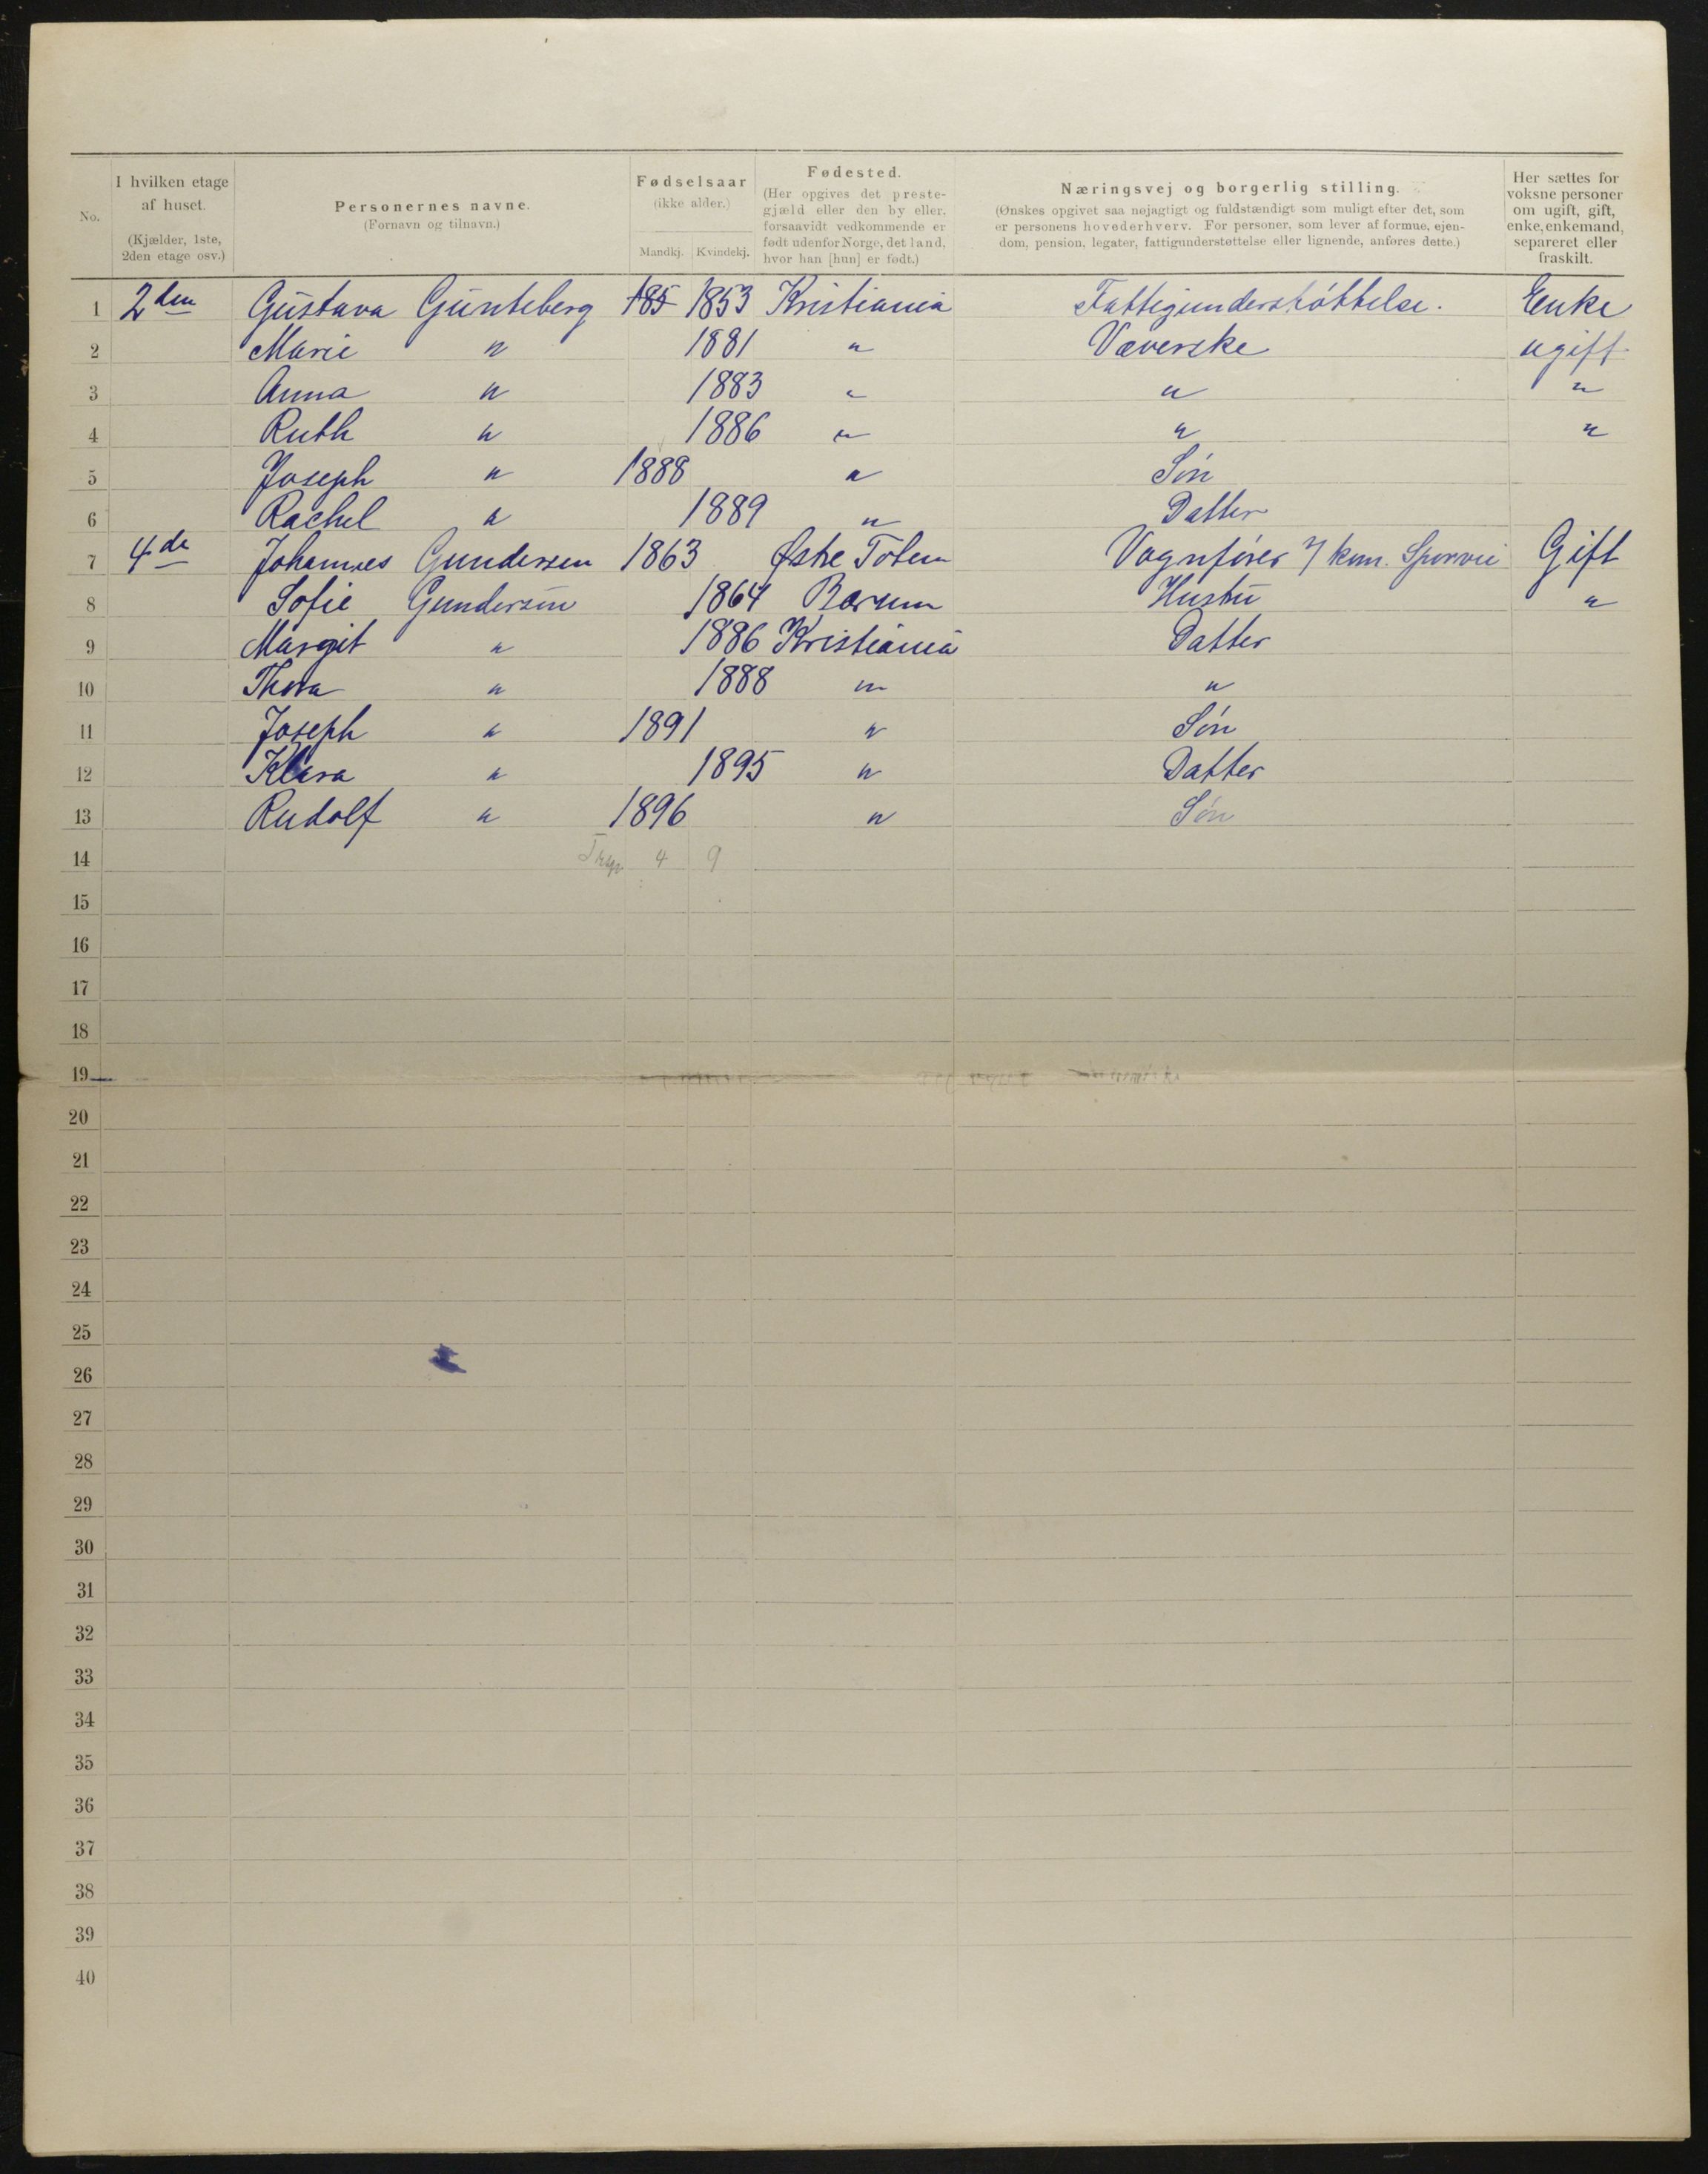 No.
I hvilken etage
af huset.
(Kjælder, 1ste,
2den etage osv.)
Personernes navne.
(Fornavn og tilnavn.)
Fødselsaar
(ikke alder.)
Mandkj. Kvindekj.
Fødested.
(Her opgives det preste-
gjæld eller den by eller,
forsaavidt vedkommende er
født udenfor Norge, det land,
hvor han [hun] er født.)
Næringsvej og borgerlig stilling.
(Ønskes opgivet saa nøjagtigt og fuldstændigt som muligt efter det, som
er personens hovederhverv. For personer, som lever af formue, ejen-
dom, pension, legater, fattigunderstøttelse eller lignende, anføres dette.)
Her sættes for
voksne personer
om ugift, gift,
enke, enkemand,
separeret eller
fraskilt.
1 2den Gustava Gunteberg 185 1853 Kristiania Fattigunderstøttelse. Enke
2 Marie " 1881 " Væverske ugift
3 Anna " 1883 " " "
4 Ruth " 1886 " " "
5 Joseph " 1888 " Søn
6 Rachel " 1889 " Datter
7 4de Johannes Gundersen 1863 Østre Toten Vognfører v/ kom. Sporvei Gift
8 Sofie Gundersen 1864 Bærum Hustru "
9 Margit " 1886 Kristiania Datter
10 Thora " 1888 " "
11 Joseph " 1891 " Søn
12 Klara " 1895 " Datter
13 Rudolf " 1896 " Søn
14 4 9
15
16
17
18
19
20
21
22
23
24
25
26
27
28
29
30
31
32
33
34
35
36
37
38
39
40